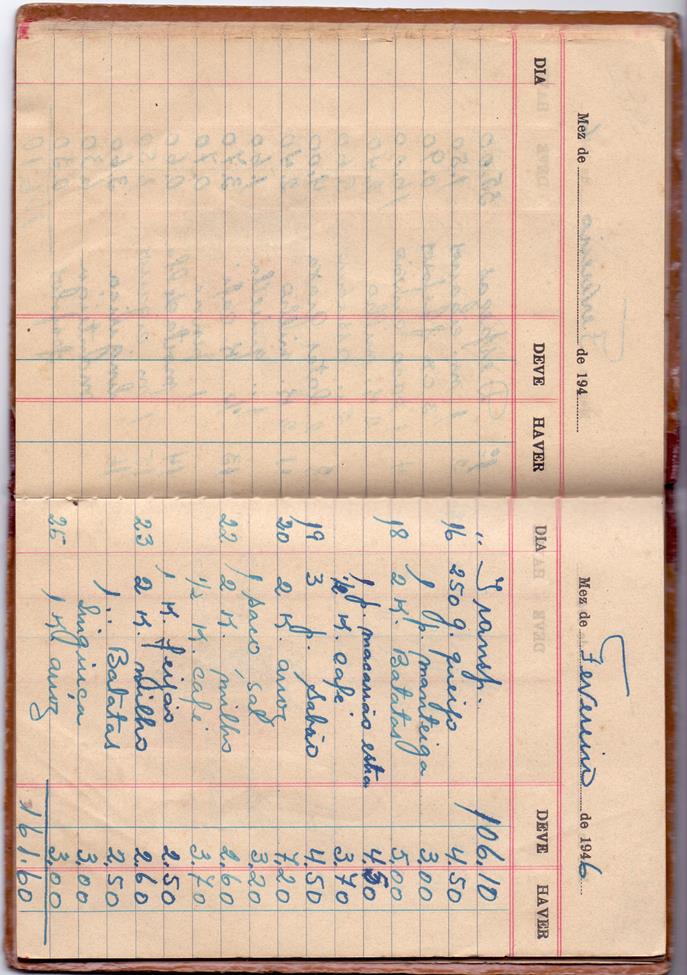 Mez de de 194
DIA DEVE HAVER
Mez de Fevereiro de 1946
DIA DEVE HAVER
" Transp. 106,10
16 250 g. queijo 4.50
1 p. manteiga 3.00
18 2 K. Batatas 5.00
1 p. macarrão estra 4.50
1/2 K. café 3.70
19 3 p. sabão 4.50
20 2 K arroz 7.20
1 saco sal 3.20
22 2 K. milho 2.60
1/2 K. café 3.70
1 K. feijão 2.50
23 2 K. milho 2.60
1 " Batatas 2,50
Linguiça 3,00
25 1 K arroz 3,00
161.60